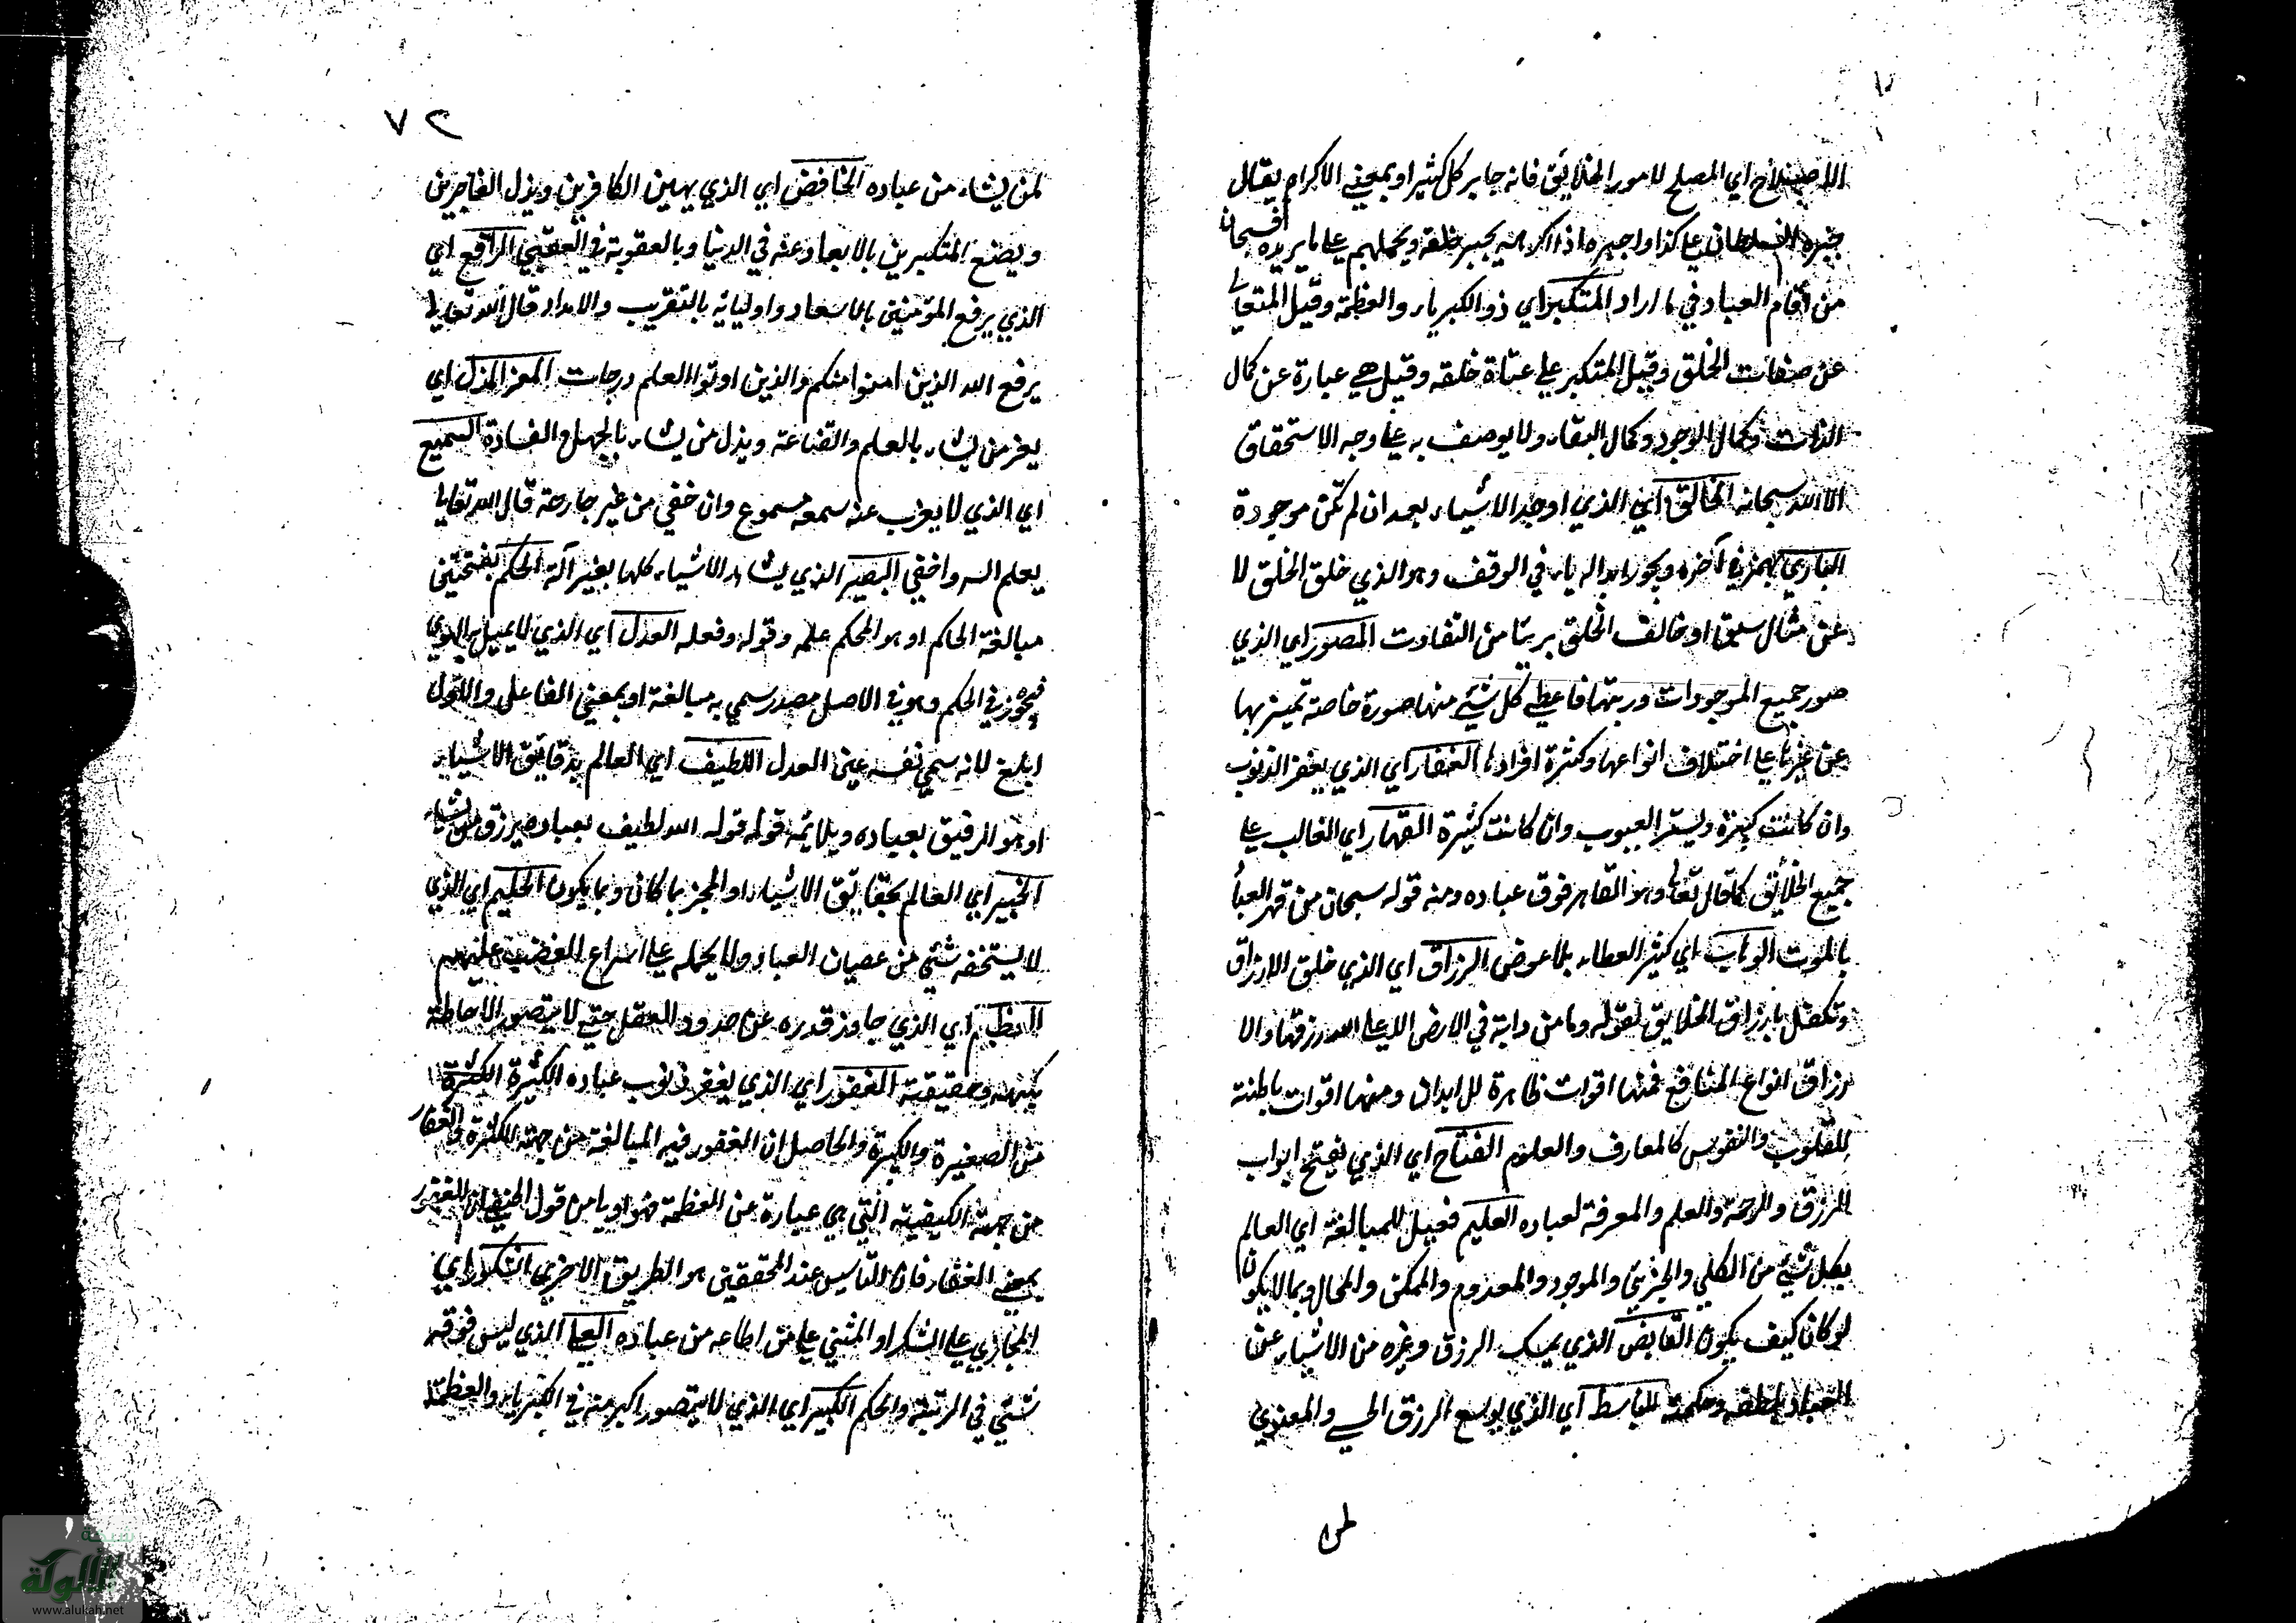 الاصلاح اي المصلح لامور الخلائق فانه جابر كل كثير او بمعني الاكرام يقال
جبره السلطان علي كذا واجبره اذا اكرهه يجبر خلقه ويحملهم علي ما يريده فسبحان
من اقام العباد في ما اراد المتكبر اي ذو الكبرياء والعظمة وقيل المتعالي
عن صفات الخلق وقيل المتكبر علي عتاة خلقه وقيل هي عبارة عن كمال
الذات وكمال الوجود وكمال البقاء ولا يوصف به علي وجه الاستحقاق
الا الله سبحانه الخالق اي الذي اوجد الاشياء بعد ان لم تكن موجودة
الباري بهمز في آخره ويجوز ابداله ياء في الوقف وهو الذي خلق الخلق لا
عن مثال سبق او خالف الخلق بريئا من التفاوت المصور اي الذي
صور جميع الموجودات ورتبها فاعطي كل شيء منها صورة خاصة تميز بها
عن غيرها علي اختلاف انواعها وكثرة افرادها الغفار اي الذي يغفر الذنوب
وان كانت كبيرة ويستر العيوب وان كانت كثيرة القهار اي الغالب علي
جميع الخلائق كما قال تعالي وهو القاهر فوق عباده ومنه قوله سبحان من قهر العباد
بالموت الوهاب اي كثير العطاء بلا عوض الرزاق اي الذي خلق الارزاق
وتكفل بارزاق الخلايق لقوله وما من دابة في الارض الا علي الله رزقها والا
رزاق انواع المنافع فمنها اقوات ظاهرة للابدان ومنها اقوات باطنة
للقلوب والنفوس كالمعارف والعلوم الفتاح اي الذي يفتح ابواب
الرزق والرحمة والعلم والمعرفة لعباده العليم فعيل للمبالغة اي العالم
بكل شيء من الكلي والجزئي والموجود والمعدوم والممكن والمحال وبما لا يكون
لو كان كيف يكون القابض الذي يمسك الرزق وغيره من الاشياء عن
العباد بلطفه وحكمته الباسط اي الذي يوسع الرزق الحسي والمعنوي
لمن
٧٢
لمن يشاء من عباده الخافض اي الذي يهين الكافرين ويذل الفاجرين
ويضع المتكبرين بالابعاد عنه في الدنيا وبالعقوبة في العقبي الرافع اي
الذي يرفع المؤمنين بالاسعاد واوليائه بالتقريب والامداد قال الله تعالي
يرفع الله الذين امنوا منكم والذين اوتوا العلم درجات المعز المذل اي
يعز من يشاء بالعلم والقناعة ويذل من يشاء بالجهل والغباوة السميع
اي الذي لا يعزب عنه سمعه مسموع وان خفي من غير جارحة قال الله تعالي
يعلم السر واخفي البصير الذي يشاهد الاشياء كلها بغير آلة الحكم بفتحتين
مبالغة الحاكم او هو المحكم علمه وقوله وفعله العدل اي الذي لا يميل به الهوي
فيجوز في الحكم وهو في الاصل مصدر سمي به مبالغة او بمعني الفاعل والاول
ابلغ لانه سمي نفسه عين العدل اللطيف اي العالم بدقايق الاشياء
او هو الرفيق بعباده ويلائمه قوله قوله الله لطيف بعباده يرزق من يشاء
الخبير اي العالم بحقايق الاشياء او المخبر بما كان وبما يكون الحليم اي الذي
لا يستخفه شيء من عصيان العباد ولا يحمله علي اسراع الغضب عليهم
العظيم اي الذي جاوز قدره عن حدود العقل حتي لا يتصور الاحاطة
بكنهه وحقيقته الغفور اي الذي يغفر ذنوب عباده الكثيرة الكثيرة
من الصغيرة والكبيرة والحاصل ان الغفور فيه المبالغة من جهة الكثرة والغفار
من جهة الكيفية التي هي عبارة عن العظمة فهو اولي من قول الحنيفي ان الغفور
بمعني الغفار فان التاسيس عند المحققين هو الطريق الاحري الشكور اي
المجازي علي الشكر او المثني علي من اطاعه من عباده العلي الذي ليس فوقه
شيء في المرتبة والحكم الكبير اي الذي لا يتصور اكبر منه في الكبرياء والعظمة
شبكة
الألوكة
www.alukah.net